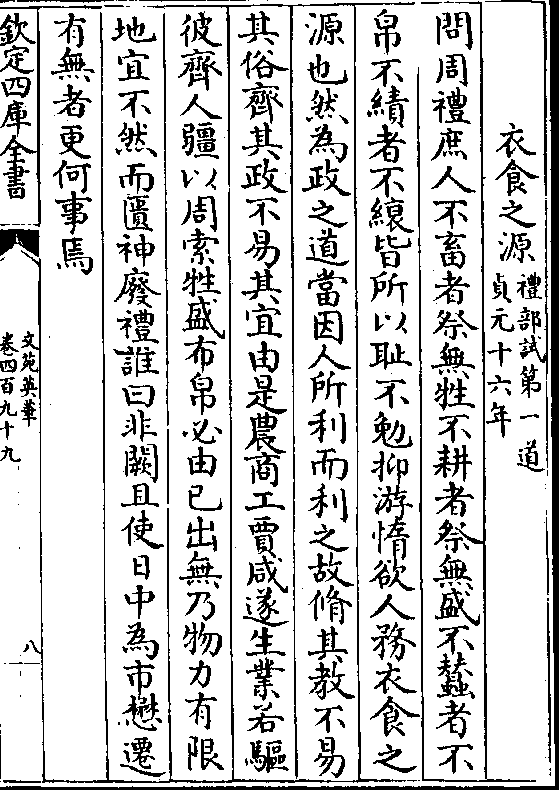 衣食之源禮部試第一道
貞元十六年
問周禮庶人不畜者祭無牲不耕者祭無盛不蠶者不
帛不績者不縗皆所以恥不勉抑游惰欲人務衣食之
源也然為政之道當因人所利而利之故脩其教不易
其俗齊其政不易其宜由是農商工賈咸遂生業若驅
彼齊人彊以周索牲盛布帛必由已出無乃物力有限
地宜不然而匱神廢禮誰曰非闕且使日中為市懋遷
有無者更何事焉
欽定四庫全書
文苑英華
卷四百九十九
八